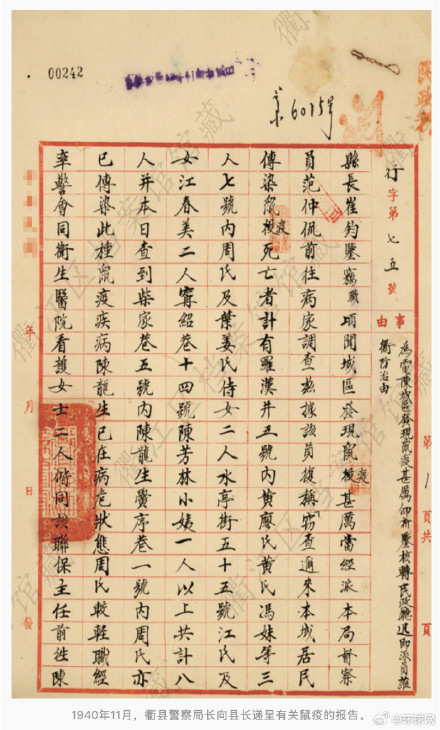 00242
第6015号
行字第七五號
事由
為電陳城區發現鼠疫甚厲仰祈鑒核轉民政廳迅即派員蒞
衢防治由
第1頁共 頁
縣長崔鈞鑒竊職頃聞城區發現鼠疫甚厲當經派本局督察
員范仲侃前往病家調查並據該員復稱竊查邇來本城居民
傳染鼠疫死亡者計有羅漢井五號內黃廖氏黃氏馮妹等三
人七號內周氏及葉姜氏侍女二人水亭街五十五號江氏及
女江春美二人寧紹巷十四號陳芳林小姨一人以上共計八
人并本日查到柴家巷五號內陳龍生費序巷一號內周氏亦
已傳染此種鼠疫疾病陳龍生已在病危狀態周氏較輕職經
率警會同衛生醫院看護女士二人偕同該聯保主任前往陳
年 月 日 發
1940年11月，衢县警察局长向县长递呈有关鼠疫的报告。
@环球网